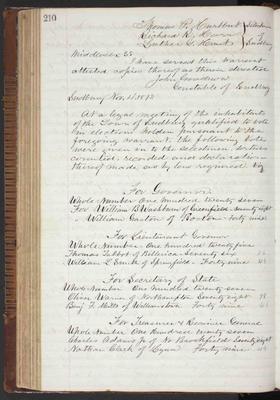 210
Thomas P. Hurlbut } Selectmen
Richard R. Horr } of
Luther S. } Sudbury
Middlesex SS
I have served this warrant
attested copies thereof as therein directed
John Goodnow
Constable of Sudbury
Sudbury Nov. 1872
At a legal meeting of the inhabitants
of the Town of Sudbury qualified to vote
in election holden pursuant to the
foregoing warrant, the following votes
were given in to the selectmen, sorted
counted, recorded and declaration
thereof made as by law required. Viz
For Governor
Whole Number One hundred Twenty seven
For William B Washburn of Greenfield Seventy eight
" William Gaston of Boston Forty nine
For Lieutenant Governor
Whole Number One hundred Twenty five
Thomas Talbot of Billerica Seventy six
William L Smith of Springfield Forty nine 49
For Secretary of State
Whole Number One hundred Twenty seven
Oliver Warner of Northampton Seventy eight 78
Benj F Mills of Williamstown Forty nine 49
For Treasurer & Receiver General
Whole Number One hundred Twenty seven
Charles Adams Jr of No Brookfield Seventy eight
Nathan Clark of Lynn Forty nine 49